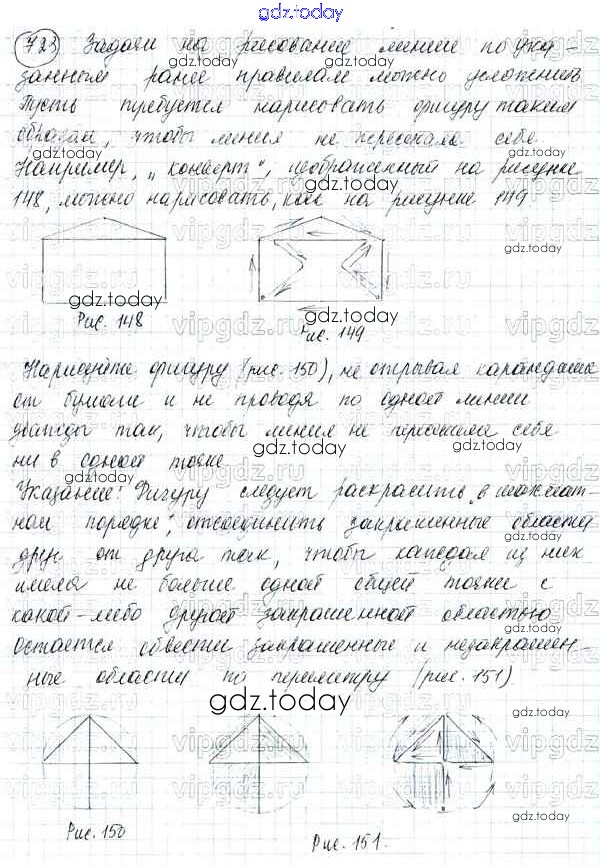 gdz.today
723 Задачи на рисование линии по ука-
занным ранее правилам можно усложнить
Пусть требуется нарисовать фигуру таким
образом, чтобы линия не пересекала себе
Например, "конверт", изображенный на рисунке
148, можно нарисовать, как на рисунке 149
Рис. 148
Рис. 149
Нарисуйте фигуру (рис. 150), не отрывая карандаша
от бумаги и не проводя по одной линии
дважды так, чтобы линия не пересекала себя
ни в одной точке
Указание: Фигуру следует раскрасить "в шахмат-
ном порядке", отсоединить закрашенные области
друг от друга так, чтобы каждая из них
имела не больше одной общей точки с
какой-либо другой закрашенной областью
Остается обвести закрашенные и незакрашен-
ные области по периметру (рис. 151)
gdz.today
Рис. 150
Рис. 151.